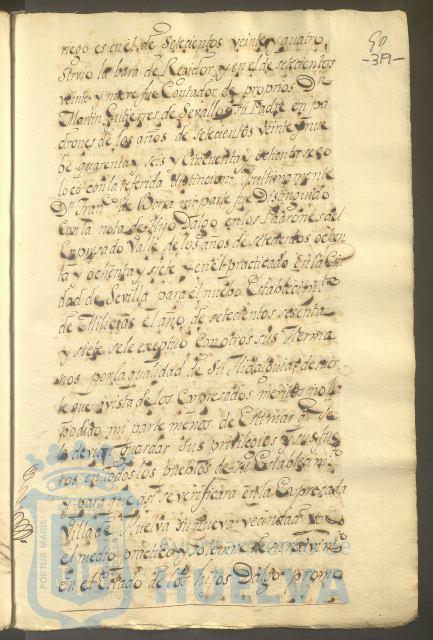 90
-319-
riego es en el de Setecientos veinte y quatro,
Sirvio la bara de Regidor, y en el de setecientos
veinte y nueve fue Contador de propios Dn
Martin Gutierres de Sevallos, su Padre en pa
drones de los años de setecientos veinte y nue
be quarenta y seis y Cincuenta y ochenta se co
loco con la referida distincion. Y ultimamente
Dn Franco de Bora mi parte fue Distinguido
Con la nota de Hijo Dalgo en los Padrones del
Expresado Valle de los años de setecientos ochen
ta y ochenta y siete y en el practicado en la Ciu
dad de Sevilla para el nuebo Establecimto
de Milicias el año de setecientos sesenta
y siete se le exeptuo con otros sus Herma
nos por la qualidad de su Hidalguia: de suer
te que a vista de los Expresados meritos no ha
podido mi parte menos de Estimar qe se
le devian guardar sus privilegios y sus fue
ros en todos los pueblos de su Establecimto
y para que asi se verificara en la Expresada
Villa de Huelva su nueva vecindad
el medio practico y solemne de su recivimto
en el Estado de los hijos Dalgo promo
PORTUS MARIS
HUELVA